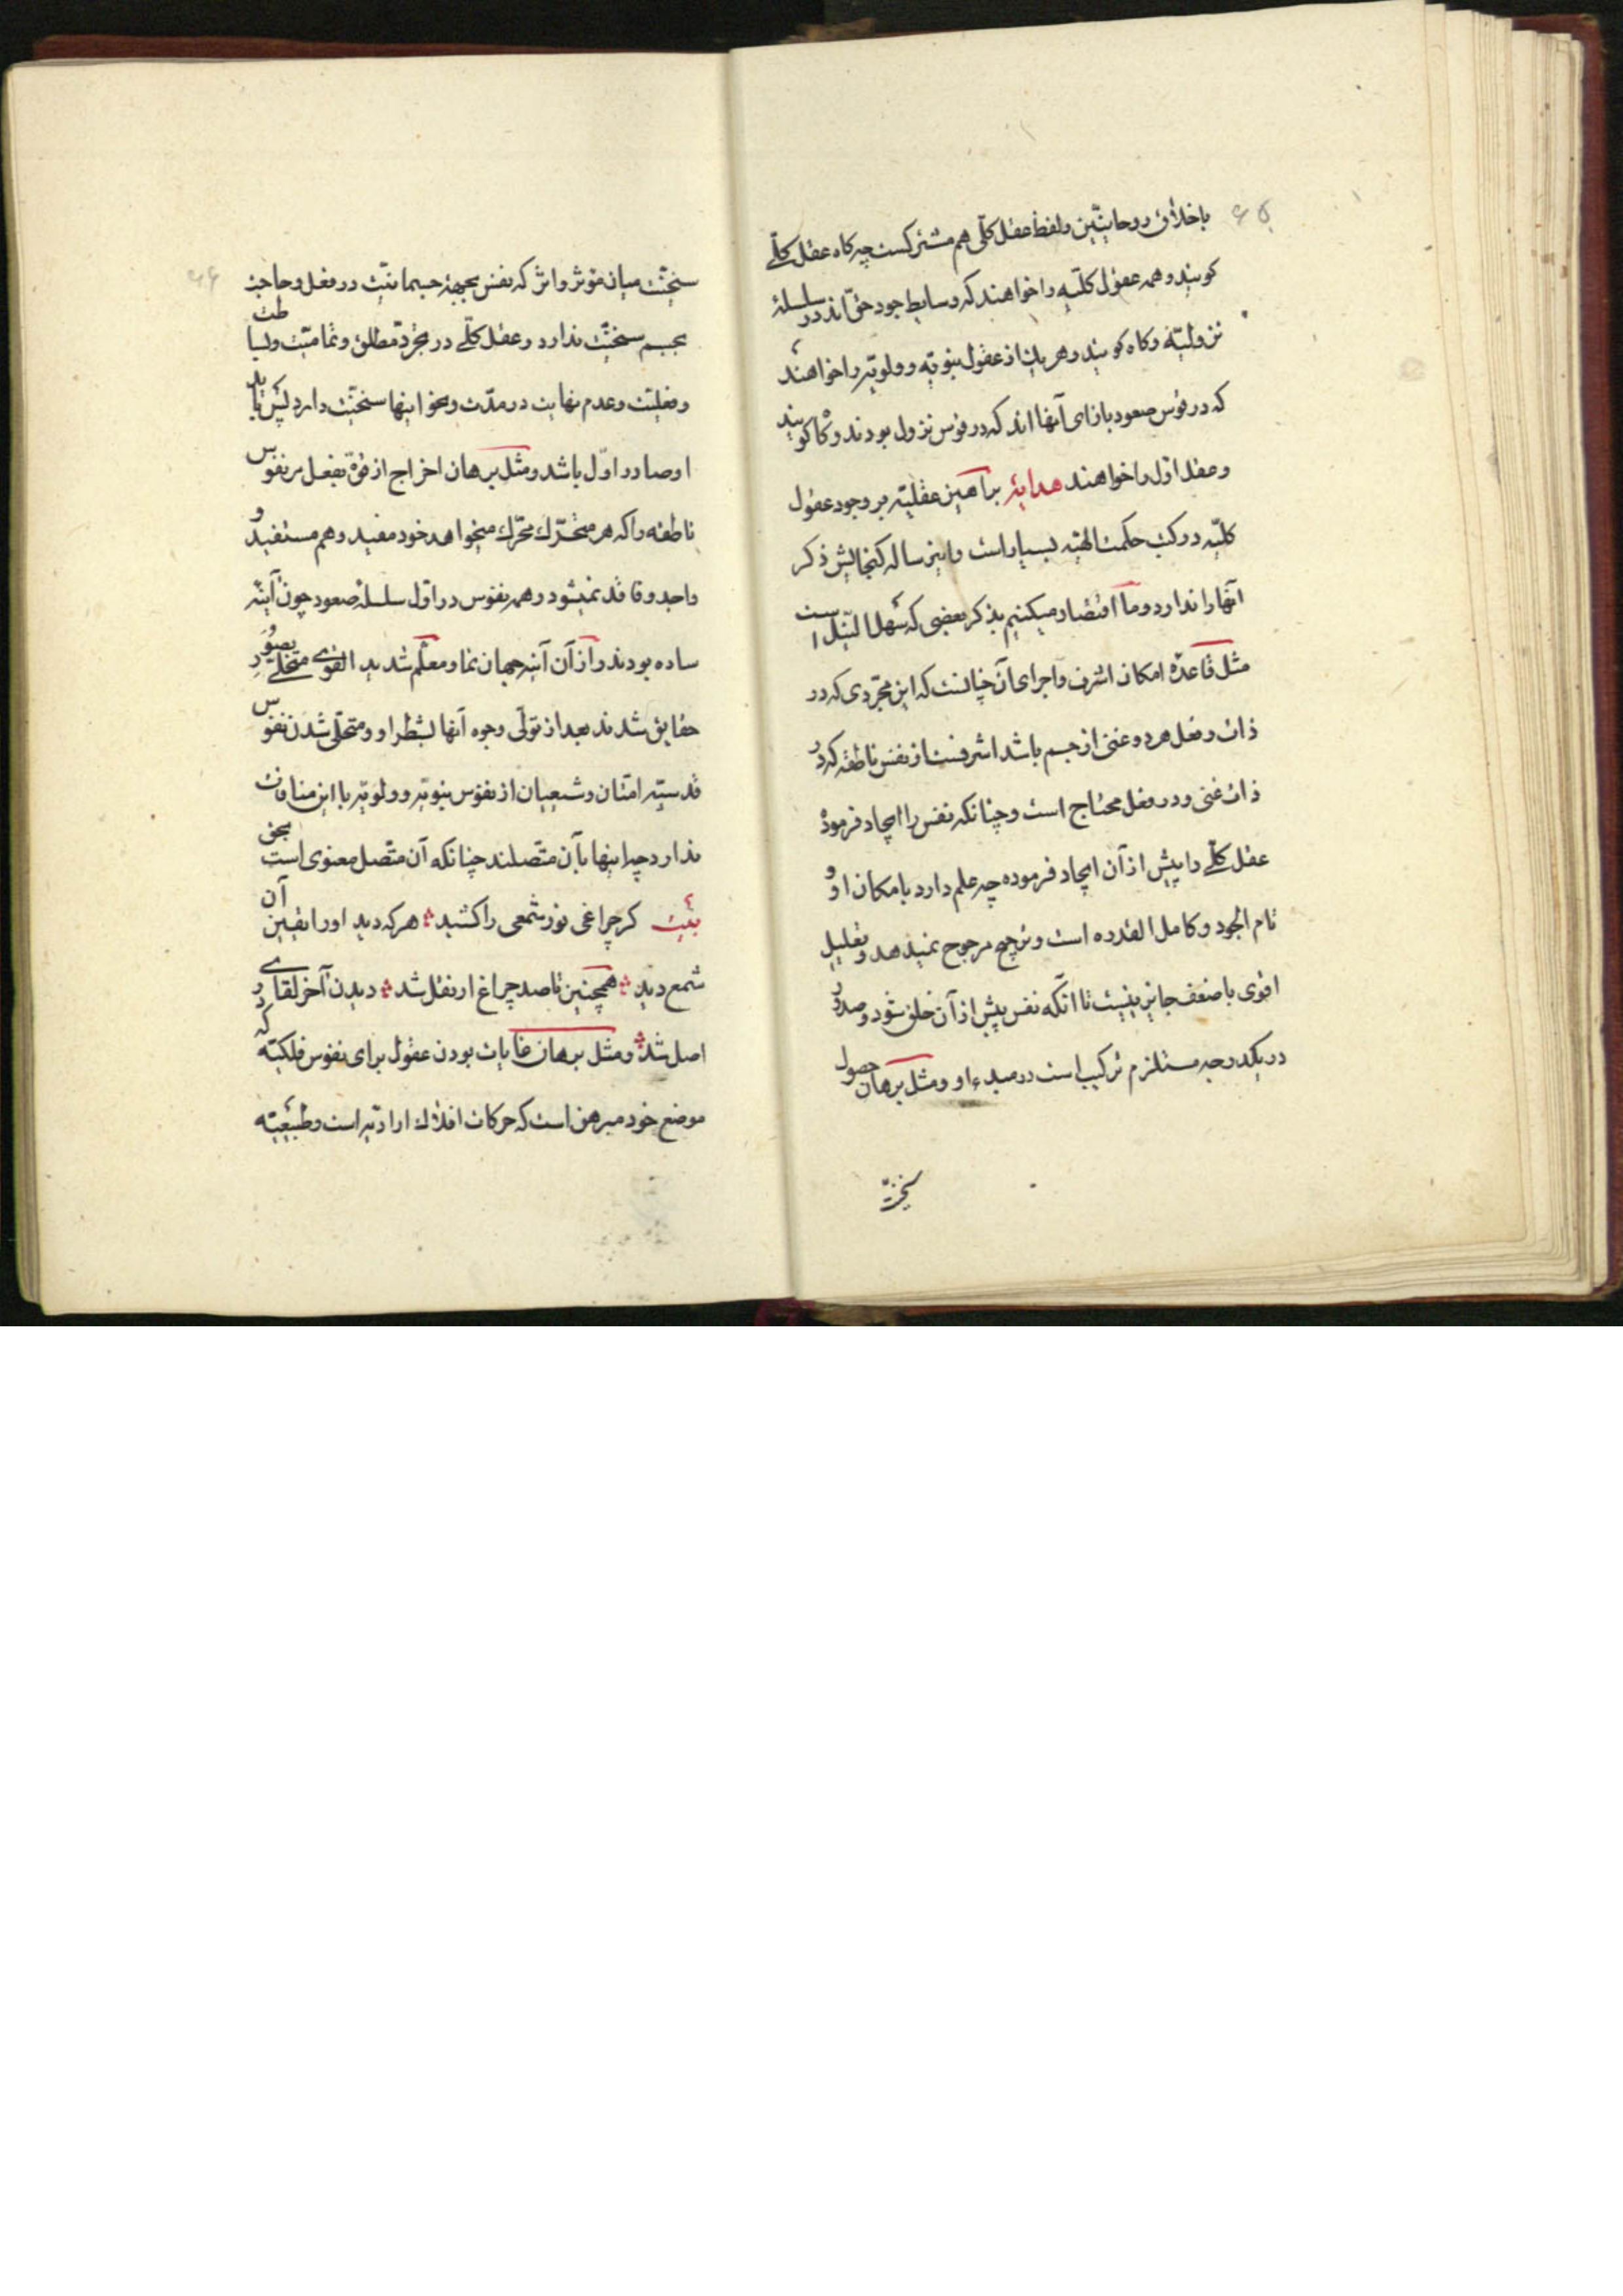 ۶۵
باخلاق روحانیین و لفظ عقل کلی هم مشترکست چه کاه عقل کلّے
کویند و همه عقول کلیه را خواهند که وسایط جود حق اند در سلسلهٔ
نزولیّه و کاه کویند و هر یک از عقول نبویّه و ولویّه را خواهند
که در قوس صعود بازای آنها اند که در قوس نزول بودند و کاه کویند
و عقل اوّل را خواهند هدایة براهین عقلیّه بر وجود عقول
کلیّه در کتب حکمت الهیّه بسیار است و این رساله کنجایش ذکر
آنها را ندارد و ما اقتصار میکنیم بذکر بعضی که سهل النیل است
مثل قاعدهٔ امکان اشرف و اجرای آن چنانست که این مجرّدی که در
ذات و فعل هر دو غنی از جسم باشد اشرفست از نفس ناطقه که در
ذات غنی و در فعل محتاج است و چنانکه نفس را ایجاد فرموده
عقل کلّے را پیش از آن ایجاد فرموده چه علم دارد بامکان او و
تام الجود و کامل القدره است و ترجیح مرجوح نمیدهد و تعلیل
اقوی باضعف جایز نیست تا آنکه نفس پیش از آن خلق شود و صدور
در یکدرجه مستلزم ترکیب است در مبدء او و مثل برهان حصول
سنخیّت
۶۶
سنخیّت میان مؤثر و اثر که نفس بجهة جسمانیّت در فعل و حاجت
بجسم سنخیّت ندارد و عقل کلّے در تجرّد مطلق و تمامیّت و بساطت
و فعلیّت و عدم نهایت در مدّت و نحو اینها سنخیّت دارد پس باید
او صادر اوّل باشد و مثل برهان اخراج از قوّة بفعل مر نفوس
ناطقه را که هر متحرّک محرّک میخواهد خود مفید و هم مستفید و
واجد و فاقد نمیشود و همه نفوس در اوّل سلسلهٔ صعود چون آینهٔ
ساده بودند و از آن آینه جهان نما و معلّم شدید القوی متحلّے بصور
حقایق شدند بعد از تولّی وجوه آنها بشطر او و متحلّی شدن نفوس
قدسیّه امّتان و شیعیان از نفوس نبویّه و ولویّه با این منافات
ندارد چه اینها بآن متّصلند چنانکه آن متّصل معنوی است بحق
بیت کر چراغی نور شمعی را کشید ؞ هر که دید او را یقین آن
شمع دید ؞ همچنین تا صد چراغ ار نقل شد ؞ دیدن آخر لقاے
اصل شد ؞ و مثل برهان غایات بودن عقول برای نفوس فلکیّه که در
موضع خود مبرهن است که حرکات افلاک ارادیّه است و طبیعیّه